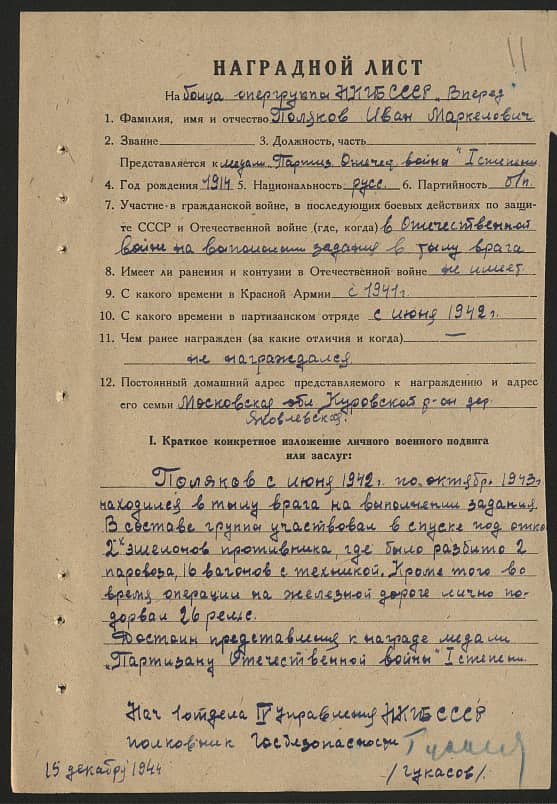 11
НАГРАДНОЙ ЛИСТ
На бойца опергруппы НКГБ СССР „Вперед"
1. Фамилия, имя и отчество Поляков Иван Маркелович
2. Звание 3. Должность, часть
Представляется к медали „Партиз. Отечеств. войны" I степени
4. Год рождения 1914 5. Национальность русс. 6. Партийность б/п.
7. Участие в гражданской войне, в последующих боевых действиях по защи-
те СССР и Отечественной войне (где, когда) в Отечественной
войне на выполнении задания в тылу врага
8. Имеет ли ранения и контузии в Отечественной войне не имеет
9. С какого времени в Красной Армии с 1941 г.
10. С какого времени в партизанском отряде с июня 1942 г.
11. Чем ранее награжден (за какие отличия и когда) —
не награждался
12. Постоянный домашний адрес представляемого к награждению и адрес
его семьи Московская обл. Куровской р-он дер.
Яковлевская.
I. Краткое конкретное изложение личного военного подвига
или заслуг:
Поляков с июня 1942 г. по октябрь 1943 г.
находился в тылу врага на выполнении задания.
В составе группы участвовал в спуске под откос
2х эшелонов противника, где было разбито 2
паровоза, 16 вагонов с техникой. Кроме того во
время операции на железной дороге лично по-
дорвал 26 рельс.
Достоин представления к награде медали
„Партизану Отечественной войны" I степени.
Нач 1 отдела IV Управления НКГБ СССР
полковник Госбезопасности
/Гукасов/
15 декабря 1944